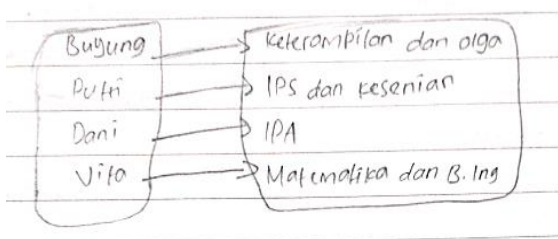 Buyung Keterampilan dan olga
Putri IPS dan kesenian
Dani IPA
Vita Matematika dan B. Ing